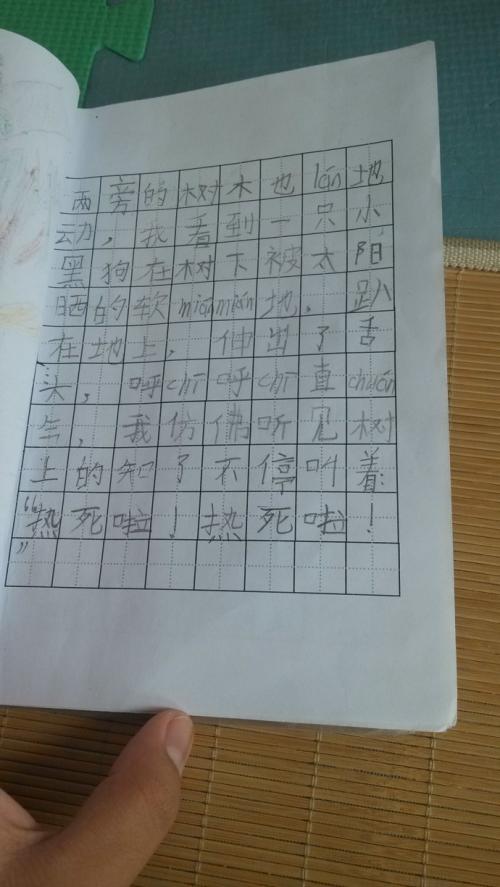 两旁的树木也lán地
动，我看到一只小
黑狗在树下被太阳
晒的软miánmián地，趴
在地上，伸出了舌
头，呼chī呼chī直chuán
气，我仿佛听见树
上的知了不停叫着：
“热死啦！热死啦！
”